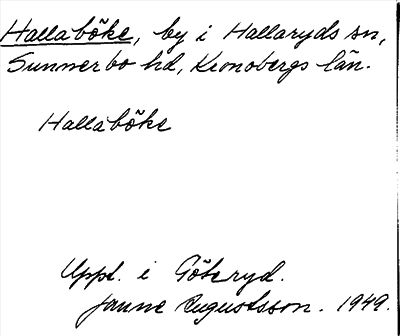 Hallaböke, by i Hallaryds sn,
Sunnerbo hd, Kronobergs län.
Hallaböke
Uppt. i Göteryd.
Janne Augustsson. 1949.